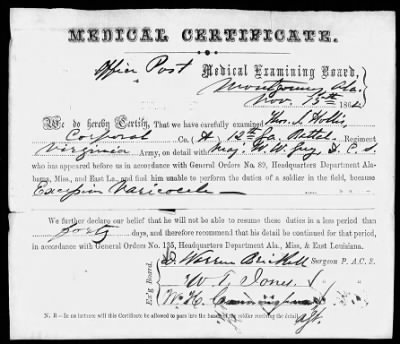 MEDICAL CERTIFICATE.
Office Post Medical Examining Board,
Montgomery Ala.
Nov. 15th 1864
We do hereby Certify, That we have carefully examined Thos. J. Hollis,
Corporal Co. (A) 13th Ga. Battal. Regiment
Virginia Army, on detail with Maj. W. W. Guy A. C. S.
who has appeared before us in accordance with General Orders No. 89, Headquarters Department Ala-
bama, Miss., and East La., and find him unable to perform the duties of a soldier in the field, because
Varicocele
We further declare our belief that he will not be able to resume these duties in a less period than
forty days, and therefore recommend that his detail be continued for that period,
in accordance with General Orders No. 135, Headquarters Department Ala., Miss., & East Louisiana.
Ex'g Board. D. Warren Brickell Surgeon P. A. C. S.
W. T. Jones,
Wm. H. Cunningham
N. B.—In no instance will this Certificate be allowed to pass into the hands of the soldier receiving the detail.